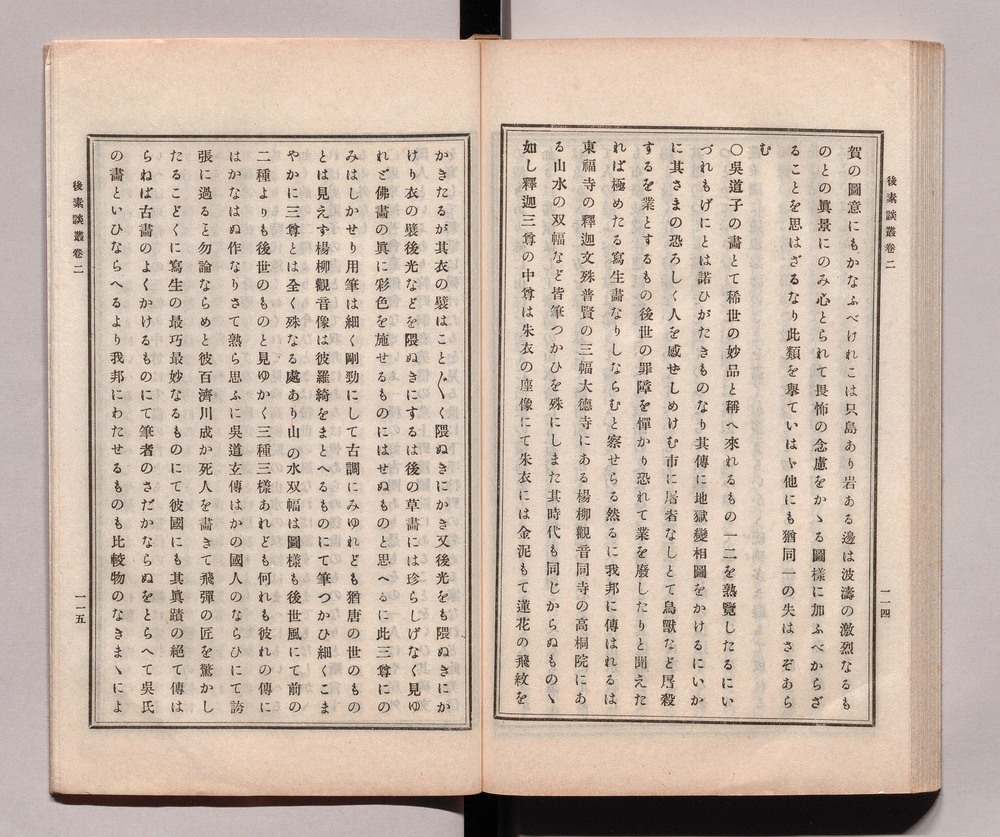 後素談叢卷二
一一四
賀の圖意にもかなふべけれこは只島あり岩ある邊は波濤の激烈なるも
のとの眞景にのみ心とられて畏怖の念慮をかゝる圖樣に加ふべからざ
ることを思はざるなり此類を擧ていはゞ他にも猶同一の失はさぞあら
む
〇吳道子の畵とて稀世の妙品と稱へ來れるもの一二を熟覽したるにい
づれもげにとは諾ひがたきものなり其傳に地獄變相圖をかけるにいか
に其さまの恐ろしく人を感ぜしめけむ市に屠者なしとて鳥獸など屠殺
するを業とするもの後世の罪障を憚かり恐れて業を廢したりと聞えた
れば極めたる寫生畵なりしならむと察せらる然るに我邦に傳はれるは
東福寺の釋迦文殊普賢の三幅大德寺にある楊柳觀音同寺の高桐院にあ
る山水の双幅など皆筆つかひを殊にしまた其時代も同じからぬものゝ
如し釋迦三尊の中尊は朱衣の座像にて朱衣には金泥もて蓮花の飛紋を
かきたるが其衣の襞はこと〴〵く隈ぬきにかき又後光をも隈ぬきにか
けり衣の襞後光などを隈ぬきにするは後の草畵には珍らしげなく見ゆ
れど佛畵の眞に彩色を施せるものにはせぬものと思へるに此三尊にの
みはしかせり用筆は細く剛勁にして古調にみゆれども猶唐の世のもの
とは見えす楊柳觀音像は彼羅綺をまとへるものにて筆つかひ細くこま
やかに三尊とは全く殊なる處あり山の水双幅は圖樣も後世風にて前の
二種よりも後世のものと見ゆかく三種三樣あれども何れも彼れの傳に
はかなはぬ作なりさて熟ら思ふに吳道玄傳はかの國人のならひにて誇
張に過ると勿論ならめと彼百濟川成か死人を畵きて飛彈の匠を驚かし
たるこどくに寫生の最巧最妙なるものにて彼國にも其眞蹟の絕て傳は
らねば古畵のよくかけるものにて筆者のさだかならぬをとらへて吳氏
の畵といひならへるより我邦にわたせるものも比較物のなきまゝによ
後素談叢卷二
一一五